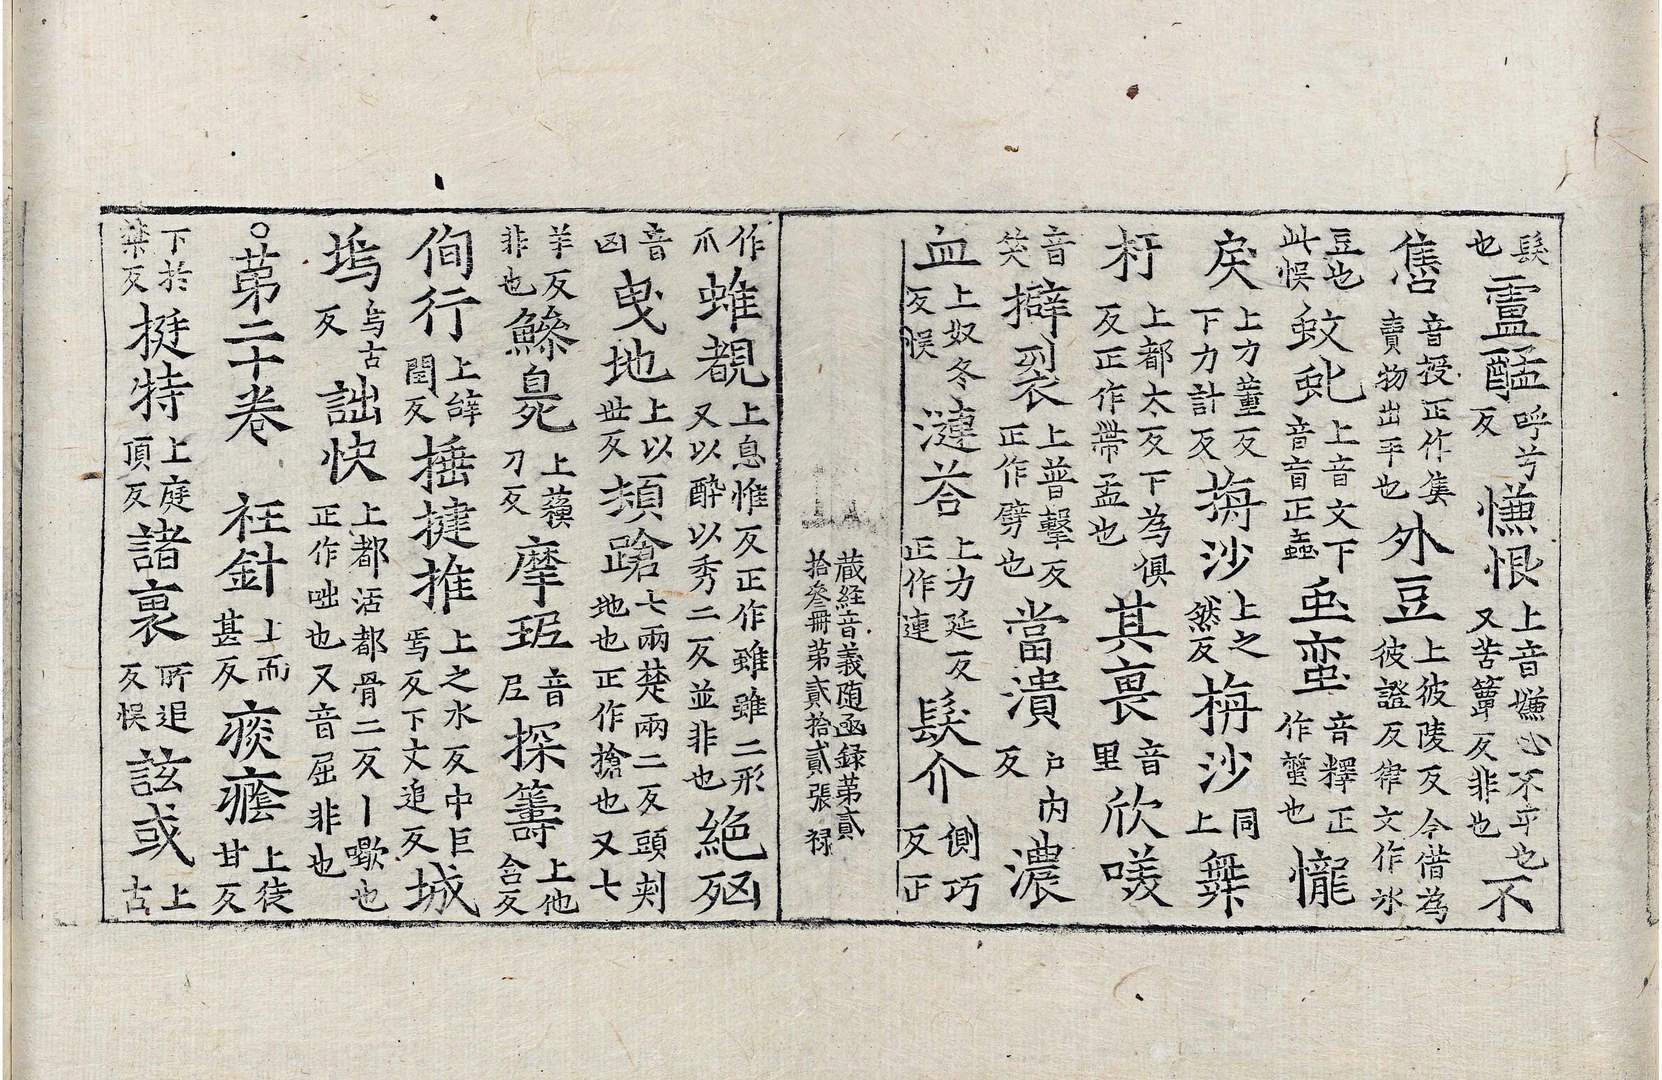 髮也靈醯呼兮反慊恨上音嫌心不平也又苦簟反非也不
售音授正作售賣物出手也外豆上彼陵反彼證反律文作冰今借為
豆也此悮蚊虻上音文下音盲正蝱䖝蛮音釋正作螫也㦬
戾上力董反下力計反栴沙上之然反栴沙同上舞
杅上都太反下為俱反正作帶盂也其裏音里欣𠸍
音笑擗裂上普擊反正作劈也當潰戶內反濃
血上奴冬反悮漣荅上力延反正作連髮介側巧反正
藏経音義随函録第貳拾叄冊第貳拾貳張 禄
作爪雖覩上息惟反正作雖雖二形又以醉以秀二反並非也絕𣦸
音凶曳地上以世反頦蹌七兩楚兩二反頭刾地也正作搶也又七
羊反非也鰺臰上蘓刀反摩𤤺音𡰱探籌上他含反
侚行上辝閏反捶揵推上之水反中巨焉反下丈追反城
塢烏古反詘快上都活都骨二反丨㗵也正作咄也又音屈非也
○第二十卷 衽針上而甚反痰癊上徒甘反
下於禁反挺特上庭頂反諸裏所追反悮詃或上古